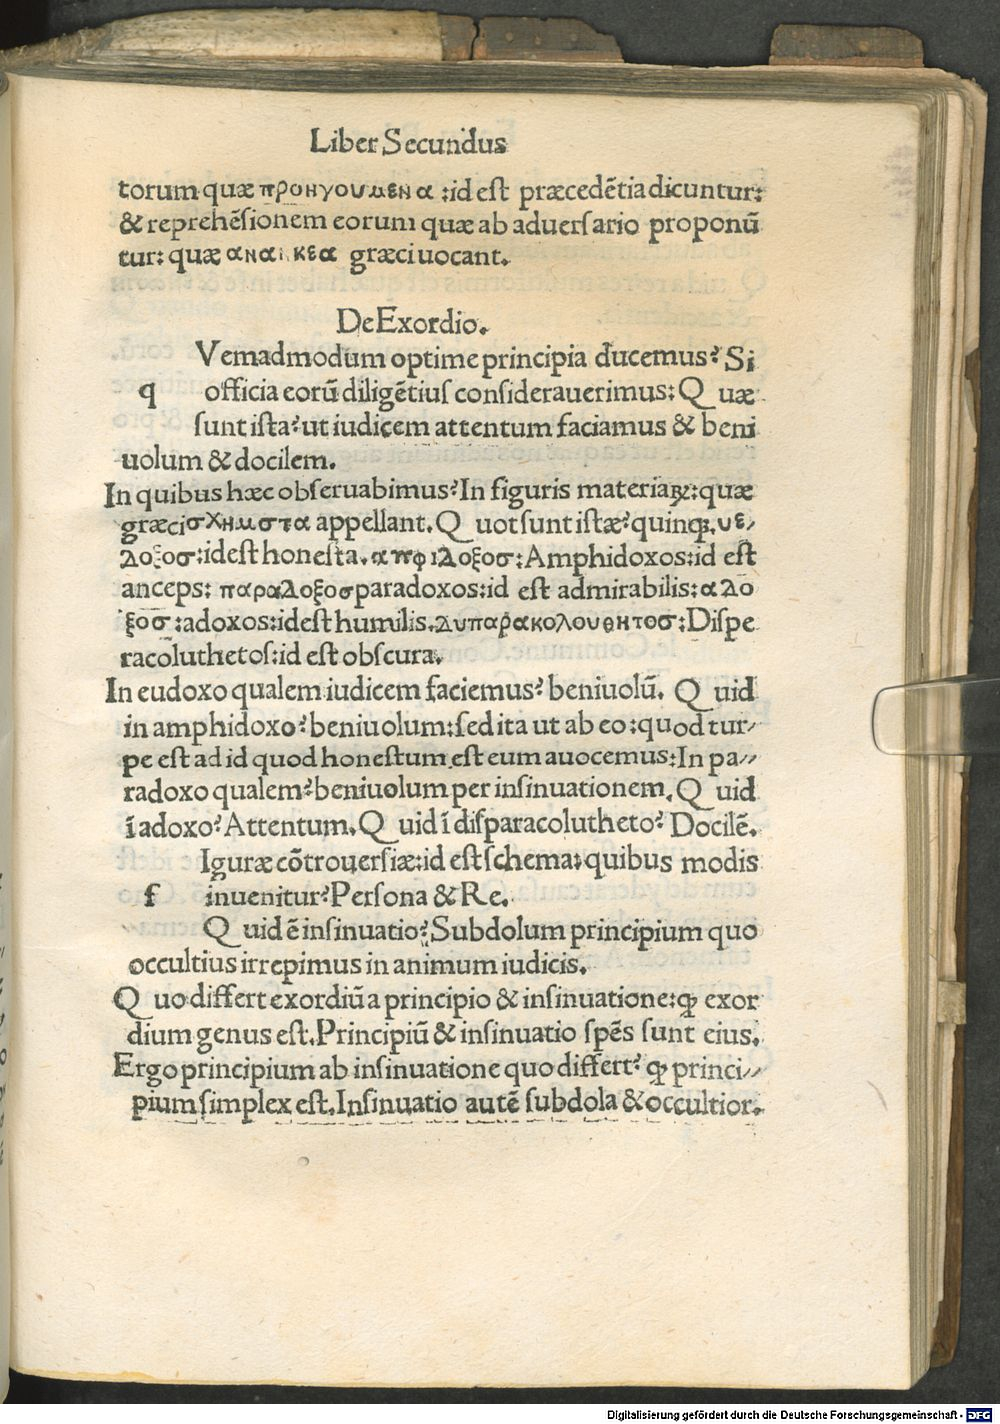 Liber Secundus
torum quæ προηγουμενα :id est præcedẽtia dicuntur:
& reprehẽsionem eorum quæ ab aduersario proponũ
tur: quæ græci uocant.
De Exordio.
Vemadmodum optime principia ducemus? Si
q officia eorũ diligẽtius considerauerimus: Quæ
sunt ista? ut iudicem attentum faciamus & beni
uolum & docilem.
In quibus hæc obseruabimus? In figuris materiaꝝ: quæ
græci σχημστα appellant. Quot sunt istæ? quinqꝫ. υε,
λοξοσ: id est honesta. απφιλοξοσ: Amphidoxos: id est
anceps: παραλοξοσ paradoxos: id est admirabilis: αλο
ξοσ: adoxos: id est humilis. λυπαρακολουθητοσ: Dispe
racoluthetos: id est obscura.
In eudoxo qualem iudicem faciemus? beniuolũ. Quid
in amphidoxo? beniuolum: sed ita ut ab eo: quod tur//
pe est ad id quod honestum est eum auocemus: In pa//
radoxo qualem? beniuolum per insinuationem. Quid
ĩ adoxo? Attentum. Quid ĩ disparacolutheto? Docilẽ.
Iguræ cõtrouersiæ: id est schema: quibus modis
f inuenitur? Persona & Re.
Quid ẽ insinuatio? Subdolum principium quo
occultius irrepimus in animum iudicis.
Quo differt exordiũ a principio & insinuatione: ꝙ exor
dium genus est. Principiũ & insinuatio spẽs sunt eius.
Ergo principium ab insinuatione quo differt? ꝙ princi//
pium simplex est. Insinuatio autẽ subdola & occultior.
Digitalisierung gefördert durch die Deutsche Forschungsgemeinschaft - DFG